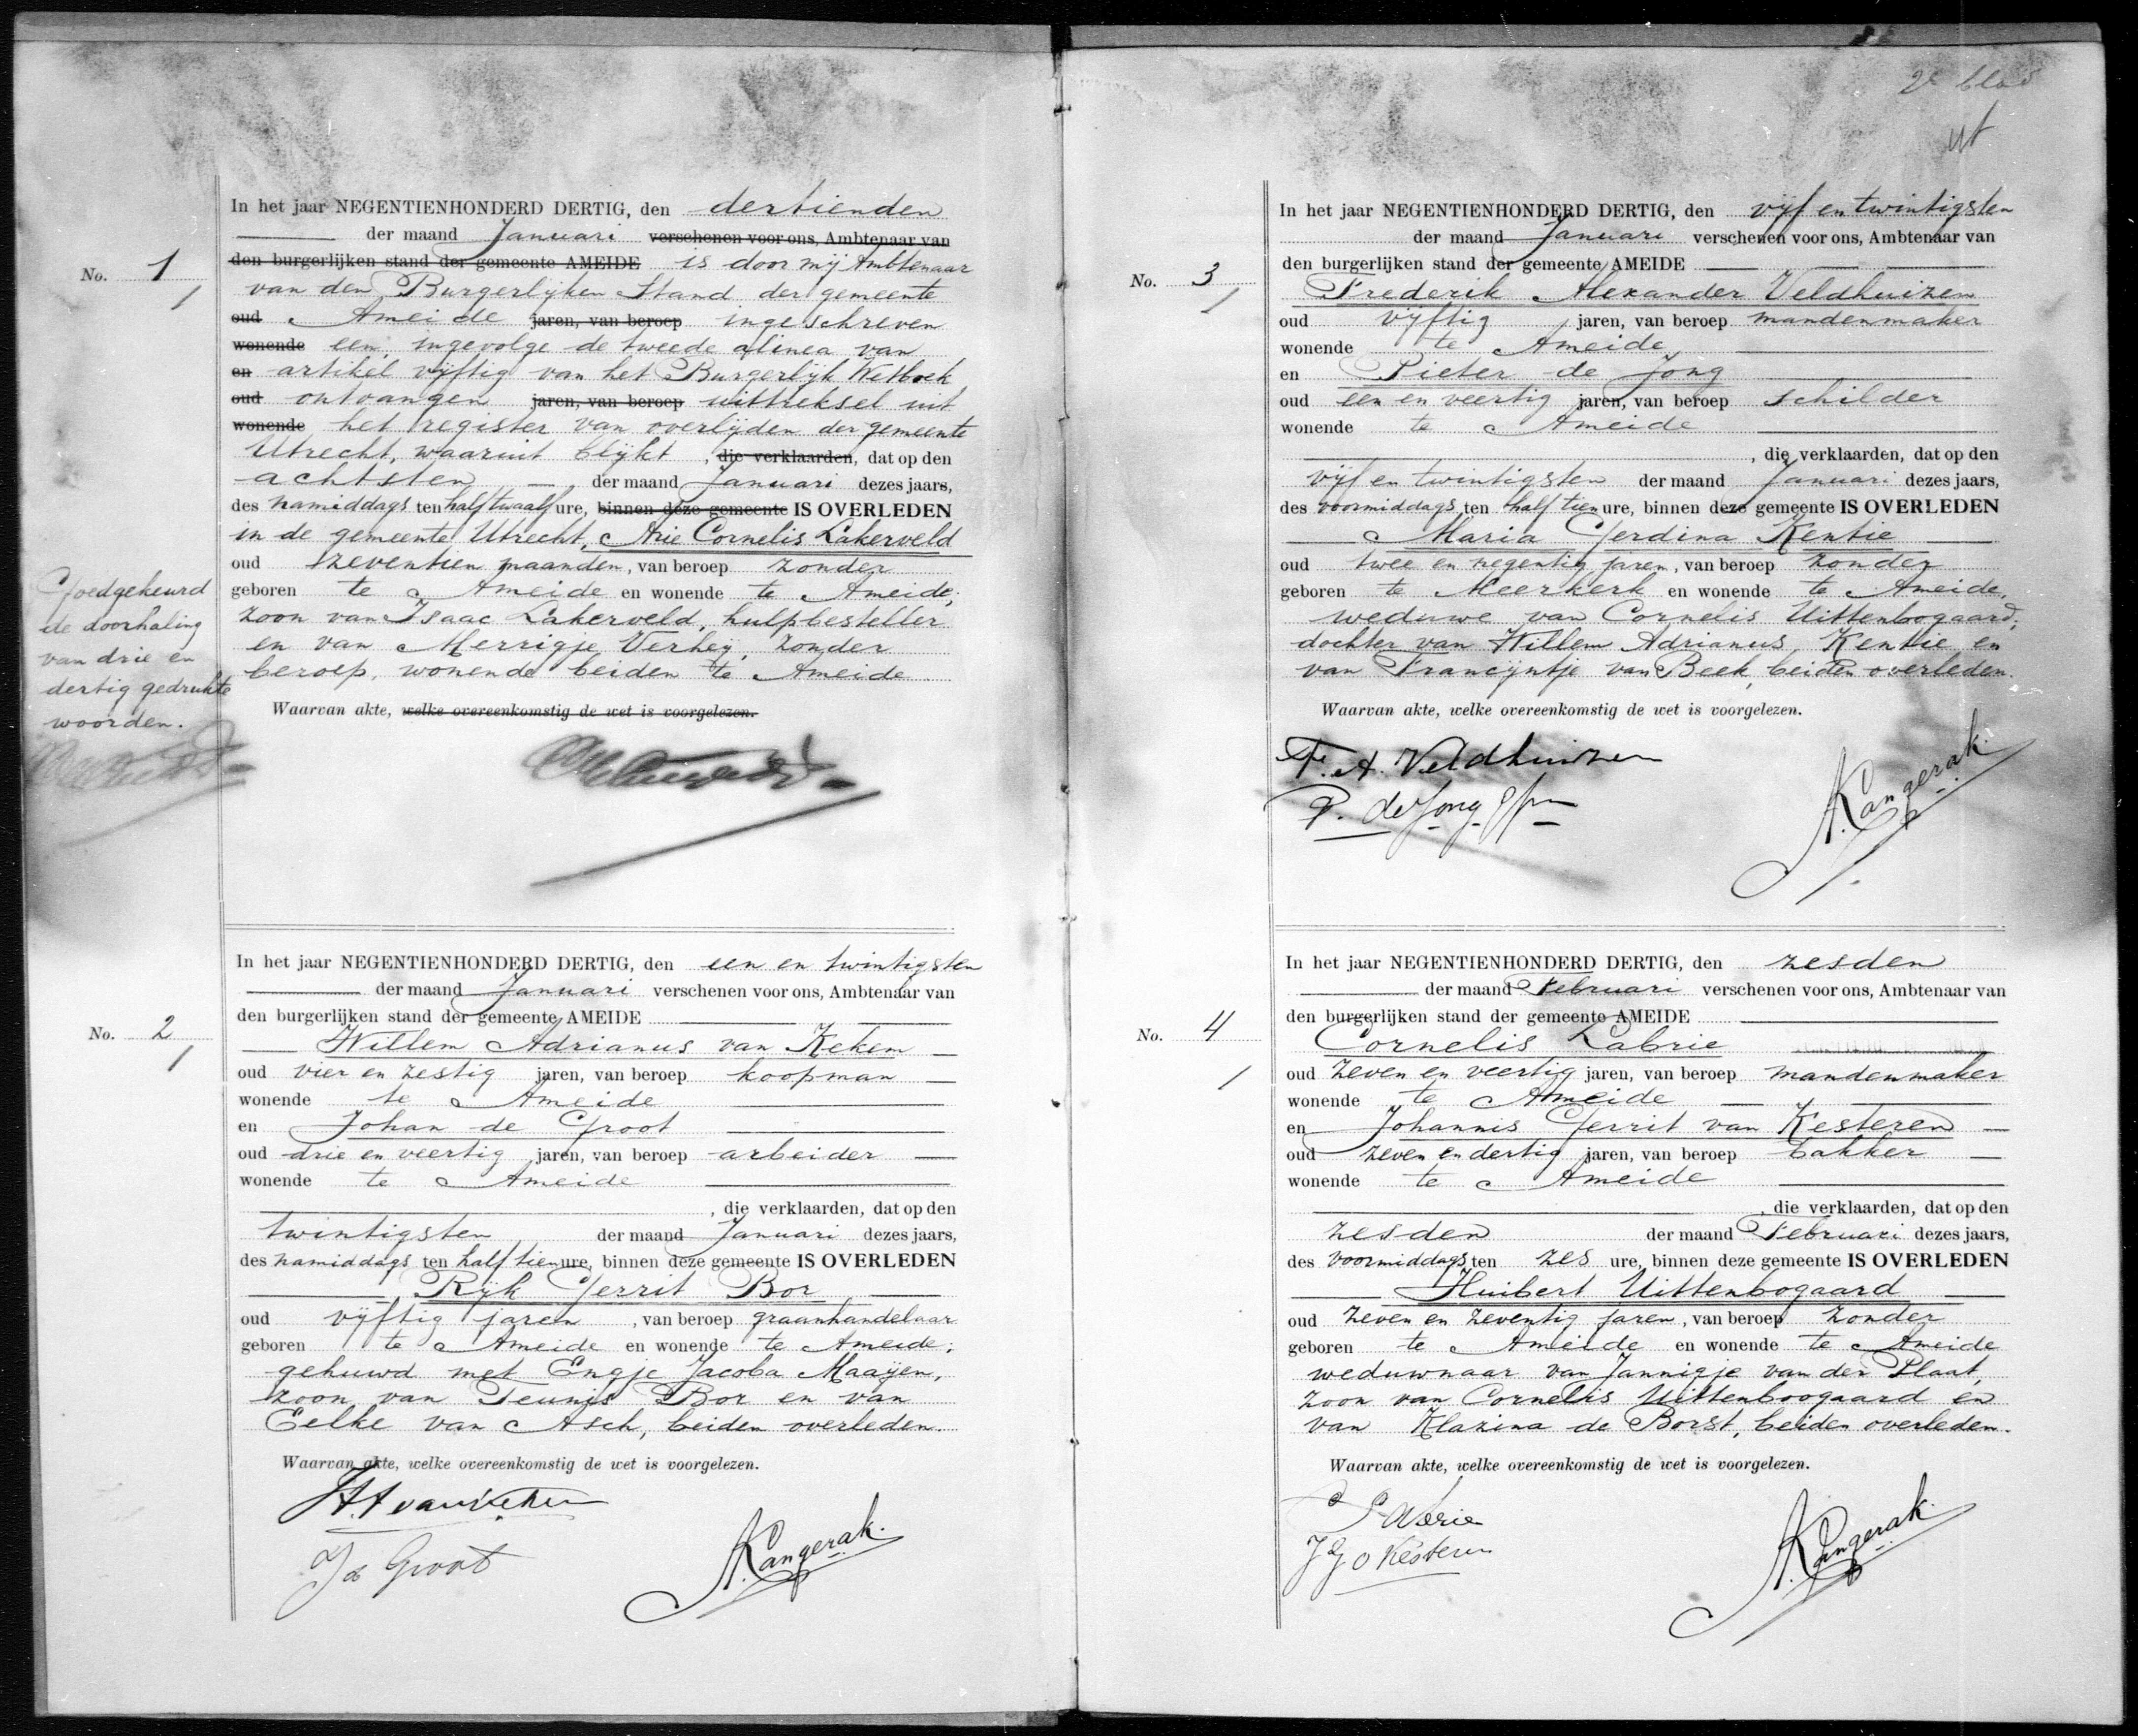 In het jaar NEGENTIENHONDERD DERTIG, den dertienden
der maand Januari verschenen voor ons, Ambtenaar van
No. 1
den burgerlijken stand der gemeente AMEIDE is door mij Ambtenaar
1
van den Burgerlijken Stand der gemeente
oud Ameide jaren, van beroep ingeschreven
wonende een, ingevolge de tweede alinea van
en artikel vijftig van het Burgerlijk Wetboek
oud ontvangen jaren, van beroep uittreksel uit
wonende het register van overlijden der gemeente
Utrecht, waaruit blijkt, die verklaarden, dat op den
achtsten der maand Januari dezes jaars,
des namiddags ten half twaalf ure, binnen deze gemeente IS OVERLEDEN
in de gemeente Utrecht, Arie Cornelis Lakerveld
oud zeventien maanden, van beroep zonder
geboren te Ameide en wonende te Ameide;
zoon van Isaac Lakerveld, hulpbesteller
en van Merrigje Verheij, zonder
beroep, wonende beiden te Ameide
Waarvan akte, welke overeenkomstig de wet is voorgelezen.
Goedgekeurd
de doorhaling
van drie en
dertig gedrukte
woorden.
In het jaar NEGENTIENHONDERD DERTIG, den een en twintigsten
der maand Januari verschenen voor ons, Ambtenaar van
den burgerlijken stand der gemeente AMEIDE
No. 2
1
Willem Adrianus van Kekem
oud vier en zestig jaren, van beroep koopman
wonende te Ameide
en Johan de Groot
oud drie en veertig jaren, van beroep arbeider
wonende te Ameide
, die verklaarden, dat op den
twintigsten der maand Januari dezes jaars,
des namiddags ten half tien ure, binnen deze gemeente IS OVERLEDEN
Rijk Gerrit Bor
oud vijftig jaren, van beroep graanhandelaar
geboren te Ameide en wonende te Ameide;
gehuwd met Engje Jacoba Maaijen,
zoon van Teunis Bor en van
Eelke van Asch, beiden overleden.
Waarvan akte, welke overeenkomstig de wet is voorgelezen.
W A van Kekem
J de Groot
A. Kangerak.
2e blad
In het jaar NEGENTIENHONDERD DERTIG, den vijf en twintigsten
der maand Januari verschenen voor ons, Ambtenaar van
den burgerlijken stand der gemeente AMEIDE
No. 3
1
Frederik Alexander Veldhuizen
oud vijftig jaren, van beroep mandenmaker
wonende te Ameide
en Pieter de Jong
oud een en veertig jaren, van beroep schilder
wonende te Ameide
, die verklaarden, dat op den
vijf en twintigsten der maand Januari dezes jaars,
des voormiddags ten half tien ure, binnen deze gemeente IS OVERLEDEN
Maria Gerdina Kentie
oud twee en negentig jaren, van beroep zonder
geboren te Meerkerk en wonende te Ameide,
weduwe van Cornelis Uittenbogaard;
dochter van Willem Adrianus Kentie en
van Francijntje van Beek, beiden overleden.
Waarvan akte, welke overeenkomstig de wet is voorgelezen.
F. A. Veldhuizen
P. de Jong
A. Kangerak.
In het jaar NEGENTIENHONDERD DERTIG, den zesden
der maand Februari verschenen voor ons, Ambtenaar van
den burgerlijken stand der gemeente AMEIDE
No. 4
1
Cornelis Labrie
oud zeven en veertig jaren, van beroep mandenmaker
wonende te Ameide
en Johannis Gerrit van Kesteren
oud zeven en dertig jaren, van beroep bakker
wonende te Ameide
, die verklaarden, dat op den
zesden der maand Februari dezes jaars,
des voormiddags ten zes ure, binnen deze gemeente IS OVERLEDEN
Huibert Uittenbogaard
oud zeven en zeventig jaren, van beroep zonder
geboren te Ameide en wonende te Ameide
weduwnaar van Jannigje van der Plaat,
zoon van Cornelis Uittenboogaard en
van Klazina de Borst, beiden overleden.
Waarvan akte, welke overeenkomstig de wet is voorgelezen.
C Labrie
J G v Kesteren
A. Kangerak.